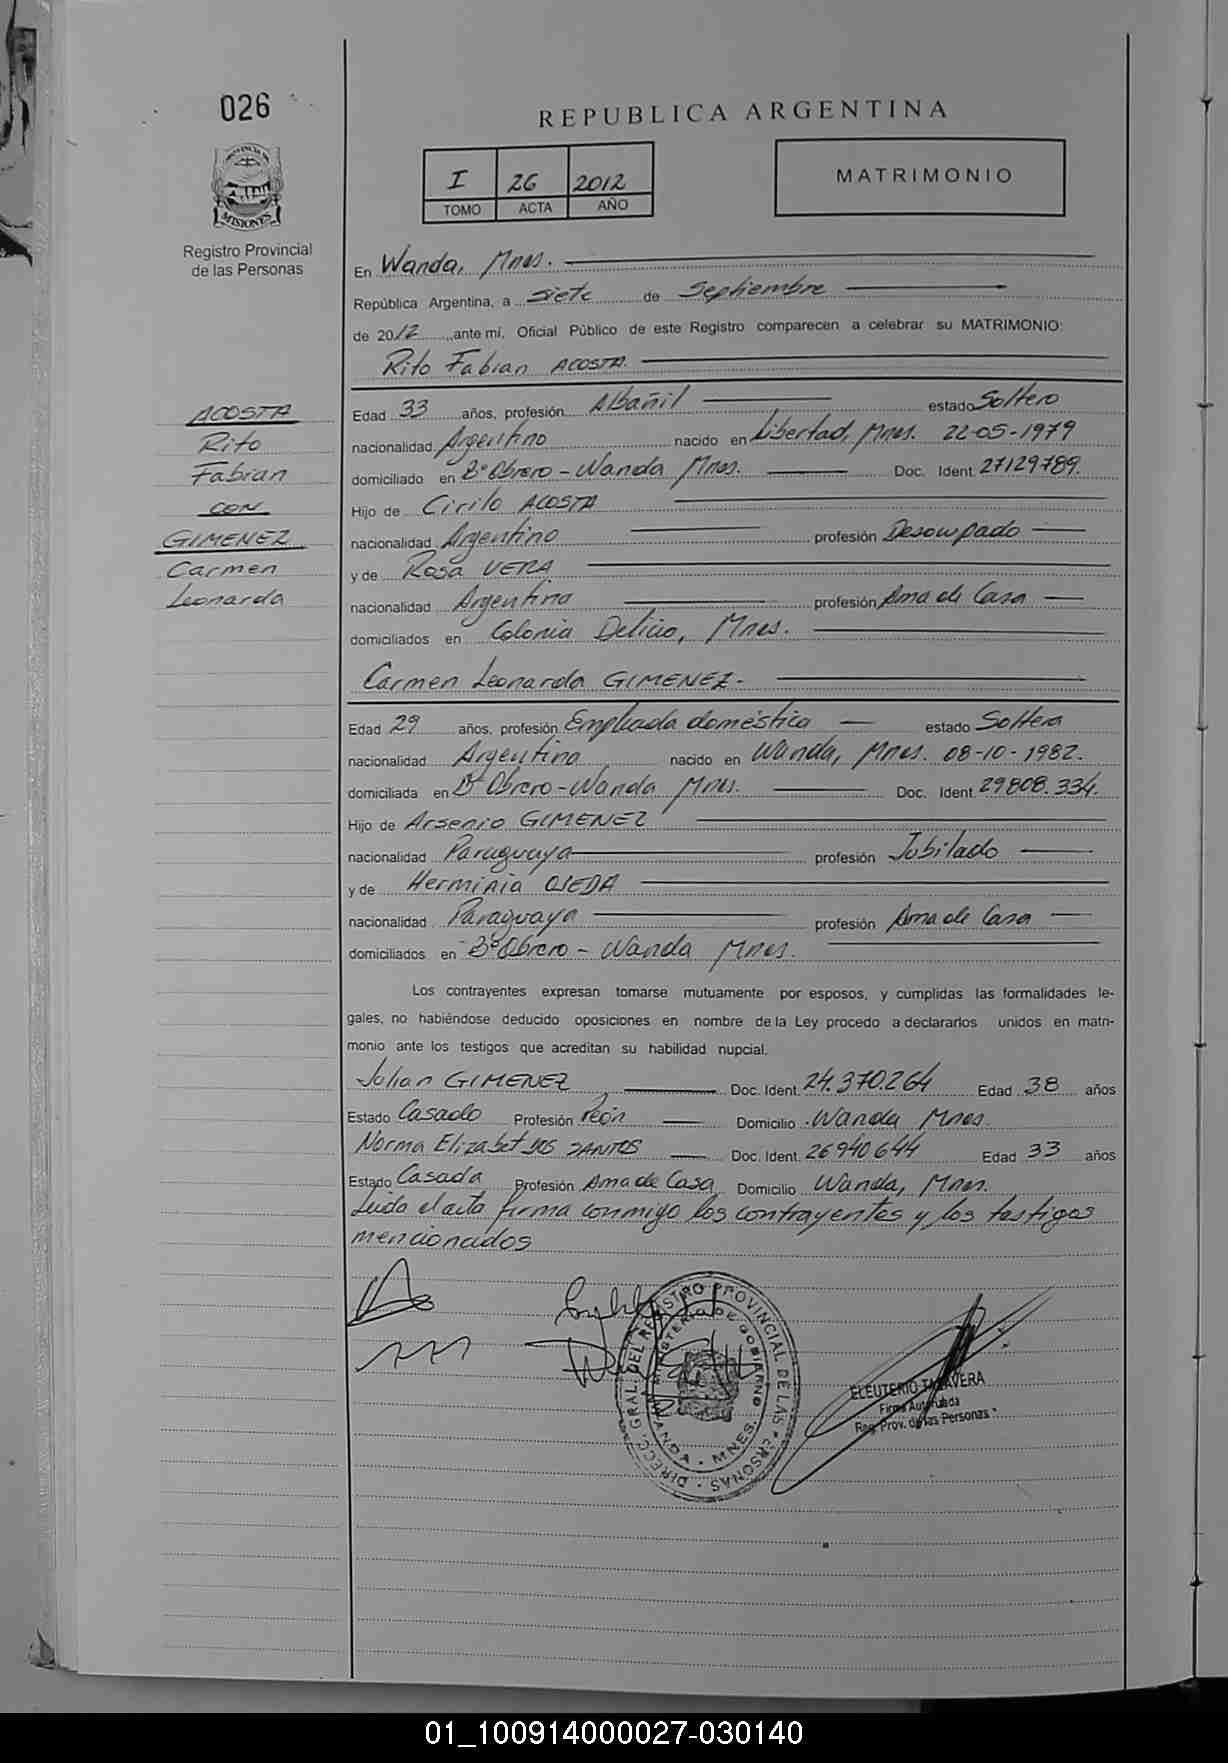 026
REPUBLICA ARGENTINA
PROVINCIA DE
MISIONES
Registro Provincial
de las Personas
I 26 2012
TOMO ACTA AÑO
MATRIMONIO
En Wanda, Mnes.
República Argentina, a siete de Septiembre
de 2012 ante mí, Oficial Público de este Registro comparecen a celebrar su MATRIMONIO:
Rito Fabian ACOSTA.
ACOSTA
Rito
Fabian
CON
GIMENEZ
Carmen
Leonarda
Edad 33 años, profesión Albañil estado Soltero
nacionalidad Argentino nacido en Libertad, Mnes. 22-05-1979
domiciliado en Bº Obrero - Wanda Mnes. Doc. Ident. 27129789.
Hijo de Cirilo ACOSTA
nacionalidad Argentino profesión Desocupado
y de Rosa VERA
nacionalidad Argentina profesión Ama de Casa
domiciliados en Colonia Delicio, Mnes.
Carmen Leonarda GIMENEZ.-
Edad 29 años, profesión Empleada doméstica estado Soltera
nacionalidad Argentina nacido en Wanda, Mnes. 08-10-1982.
domiciliada en Bº Obrero - Wanda Mnes. Doc. Ident. 29808.334.
Hijo de Arsenio GIMENEZ
nacionalidad Paraguaya profesión Jubilado
y de Herminia OJEDA
nacionalidad Paraguaya profesión Ama de Casa
domiciliados en Bº Obrero - Wanda Mnes.
Los contrayentes expresan tomarse mutuamente por esposos, y cumplidas las formalidades le-
gales, no habiéndose deducido oposiciones en nombre de la Ley procedo a declararlos unidos en matri-
monio ante los testigos que acreditan su habilidad nupcial.
Julian GIMENEZ Doc. Ident. 24.370.264 Edad 38 años
Estado Casado Profesión Peón Domicilio Wanda Mnes.
Norma Elizabet DOS SANTOS Doc. Ident. 26940644 Edad 33 años
Estado Casada Profesión Ama de Casa Domicilio Wanda, Mnes.
Leida el acta firma conmigo los contrayentes y los testigos
mencionados
DIRECC. GRAL. DEL REGISTRO PROVINCIAL DE LAS PERSONAS
MINISTERIO DE GOBIERNO
WANDA - MNES.
ELEUTERIO TALAVERA
Firma Autorizada
Reg. Prov. de las Personas
01_100914000027-030140